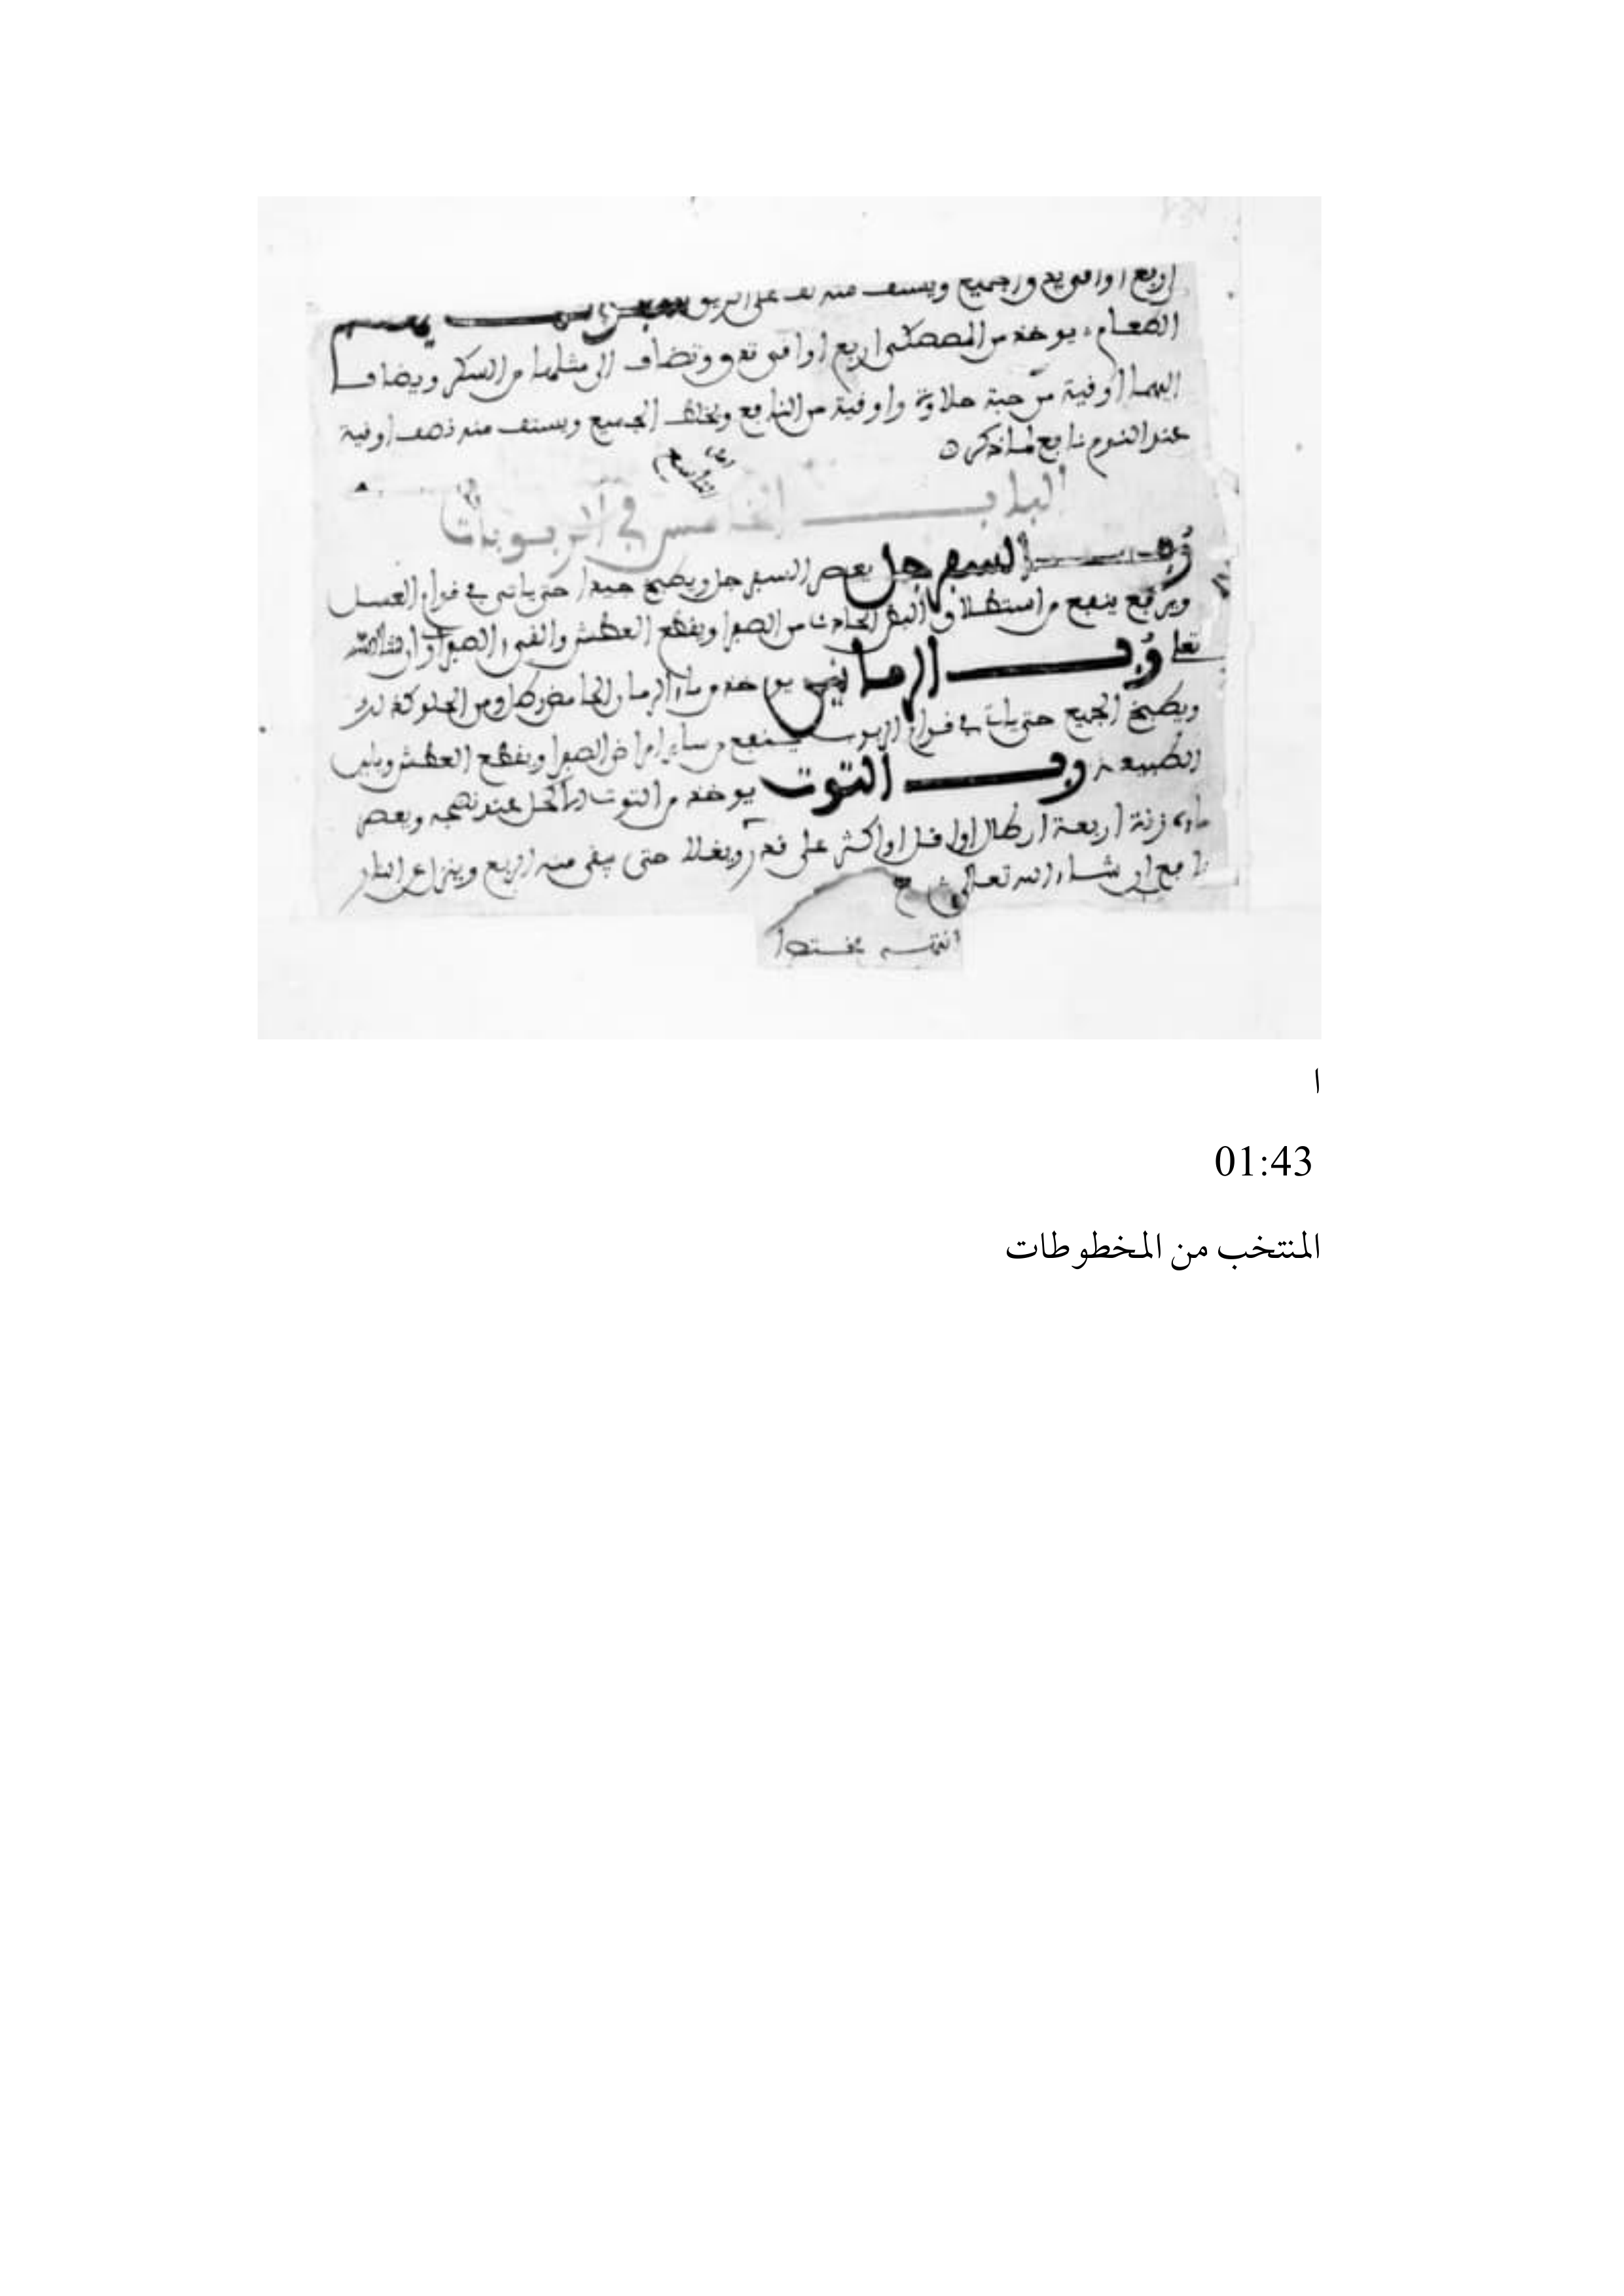 اربع اواقي يد والجميع ويستف منه على الريق
الطعام يوخذ من المصطكى اربع اواقي تدق وتضاف الى مثلها من السكر ويضاف
اليهما اوقية من حبة حلاوة واوقية من النافع ويخلط الجميع ويستف منه نصف اوقية
عند النوم نافع لما ذكر
الباب الخامس في الربوبات
رب السفرجل يعصر السفرجل ويطبخ جيدا حتى ياتي في قوام العسل
ويرفع ينفع من استطلاق البطن الحادث من الصفرا ويقطع العطش والقيء الصفراوي ان شاء الله
تعلى رب الرمانين يوخذ من ماء الرمان الحامض رطل ومن الحلو كذلك
ويطبخ الجميع حتى يات في قوام الربوب ينفع من ساير امراض الصفرا ويقطع العطش ويلين
الطبيعة رب التوت يوخذ من التوت الاكحل عند نضجه ويعصر
ماءه زنة اربعة ارطال او اقل او اكثر على قدر ويغلا حتى يبقى منه الربع وينزل عن النار
نافع ان شاء الله تعالى
ا
01:43
المنتخب من المخطوطات